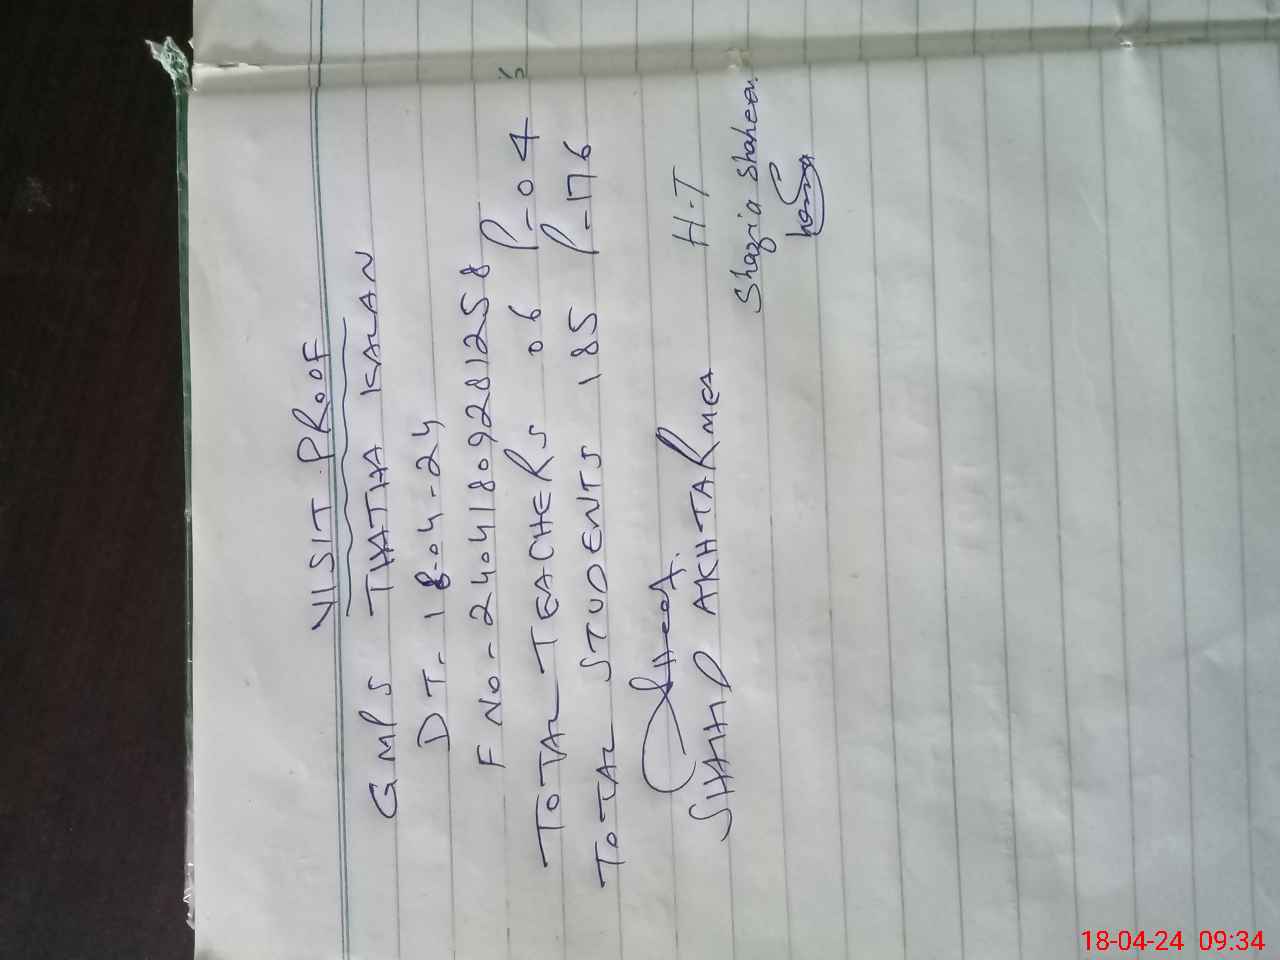 VISIT PROOF
GMPS THATHA KALAN
DT. 18-04-24
F NO-24041809281258
TOTAL TEACHERS 06 P-04
TOTAL STUDENTS 185 P-176
SHAHID AKHTAR MEA
H-T
Shazia Shaheen
18-04-24 09:34